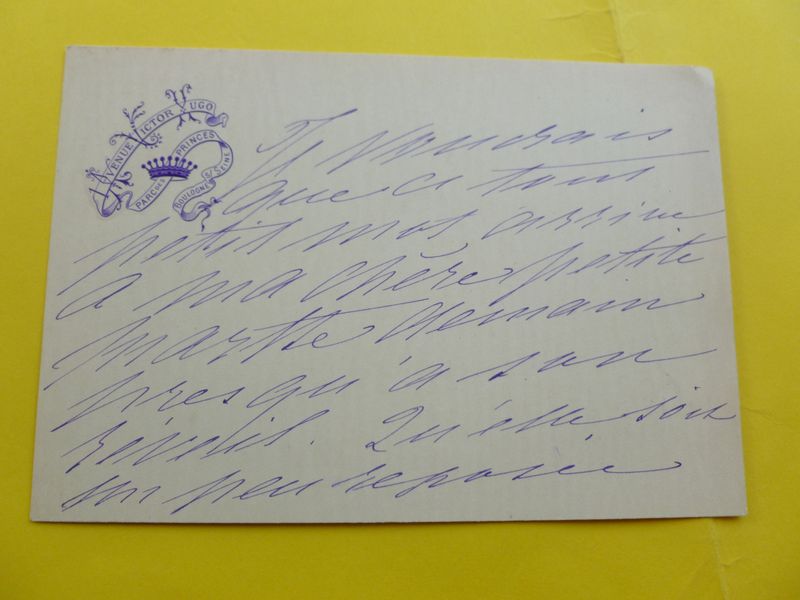 AVENUE VICTOR HUGO
PARC DES PRINCES
BOULOGNE S/ SEINE
Je voudrais
que ce tout
petit mot arrive
a ma chère petite
Marthe demain
presqu'à son
réveil. Qu'elle soit
un peu reposée